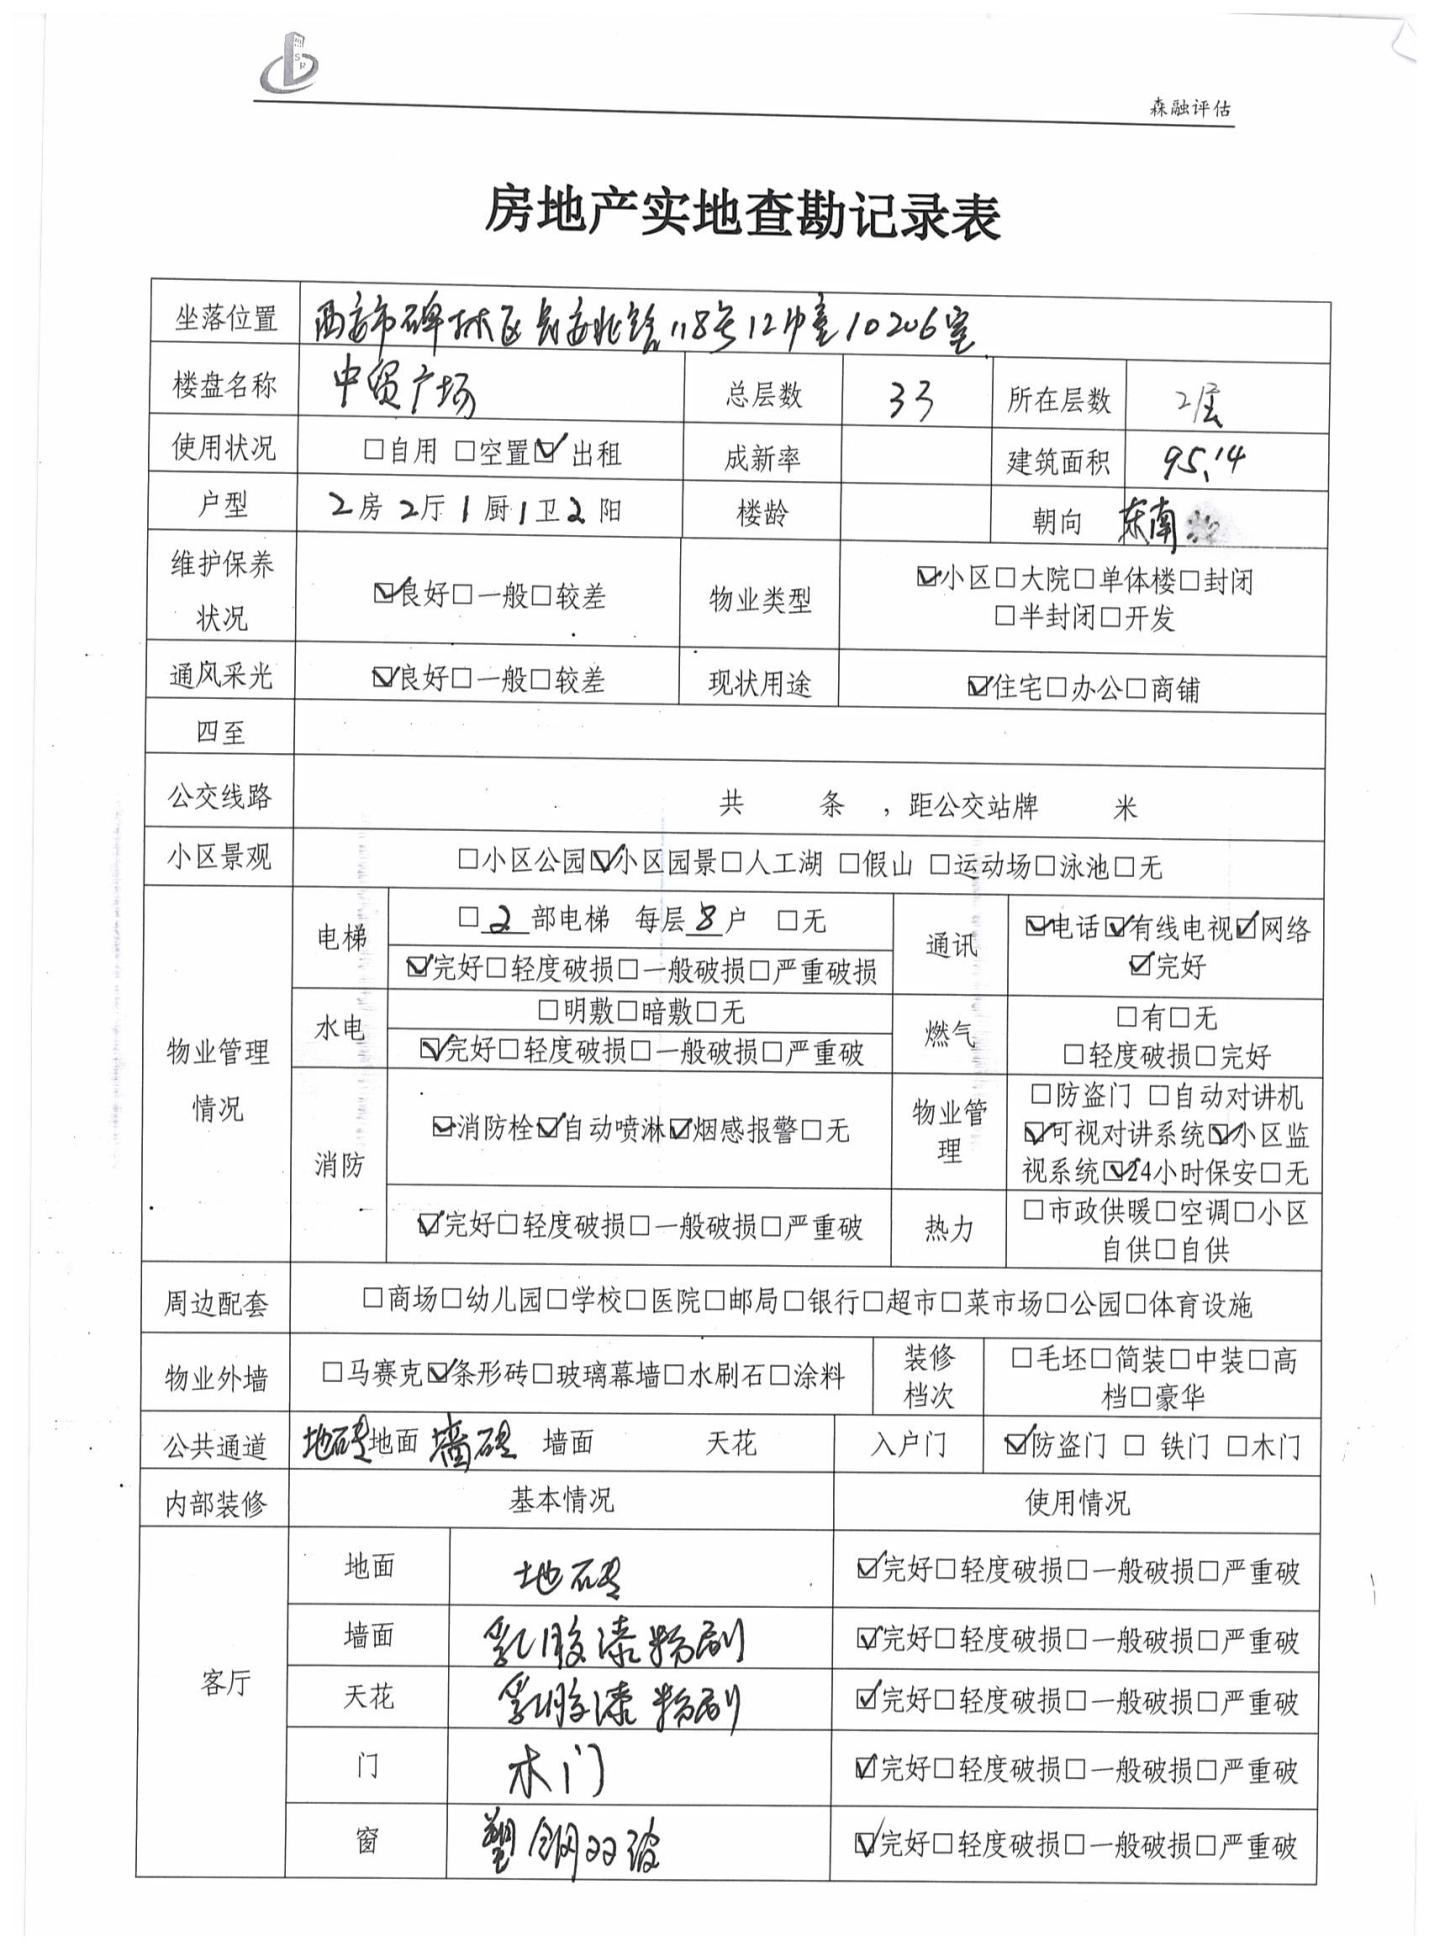 森融评估
房地产实地查勘记录表
坐落位置 西安市碑林区长安北路118号12幢10206室
楼盘名称 中贸广场 总层数 33 所在层数 2层
使用状况 □自用 □空置☑出租 成新率 建筑面积 95.14
户型 2房2厅1厨1卫2阳 楼龄 朝向 东南
维护保养状况 ☑良好□一般□较差 物业类型 ☑小区□大院□单体楼□封闭
□半封闭□开发
通风采光 ☑良好□一般□较差 现状用途 ☑住宅□办公□商铺
四至
公交线路 共 条 ，距公交站牌 米
小区景观 □小区公园☑小区园景□人工湖 □假山 □运动场□泳池□无
物业管理情况
电梯 □2部电梯 每层8户 □无
☑完好□轻度破损□一般破损□严重破损
通讯 ☑电话☑有线电视☑网络
☑完好
水电 □明敷□暗敷□无
☑完好□轻度破损□一般破损□严重破
燃气 □有□无
□轻度破损□完好
消防 ☑消防栓☑自动喷淋☑烟感报警□无
☑完好□轻度破损□一般破损□严重破
物业管理 □防盗门 □自动对讲机
☑可视对讲系统☑小区监
视系统☑24小时保安□无
热力 □市政供暖□空调□小区
自供□自供
周边配套 □商场□幼儿园□学校□医院□邮局□银行□超市□菜市场□公园□体育设施
物业外墙 □马赛克☑条形砖□玻璃幕墙□水刷石□涂料 装修档次 □毛坯□简装□中装□高
档□豪华
公共通道 地砖地面 墙砖 墙面 天花 入户门 ☑防盗门 □ 铁门 □木门
内部装修 基本情况 使用情况
客厅
地面 地砖 ☑完好□轻度破损□一般破损□严重破
墙面 乳胶漆粉刷 ☑完好□轻度破损□一般破损□严重破
天花 乳胶漆粉刷 ☑完好□轻度破损□一般破损□严重破
门 木门 ☑完好□轻度破损□一般破损□严重破
窗 塑钢双玻 ☑完好□轻度破损□一般破损□严重破